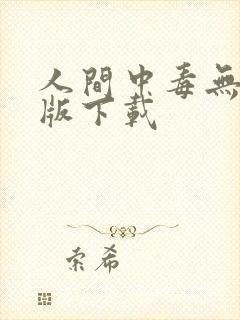 人間中毒無
版下載
索希